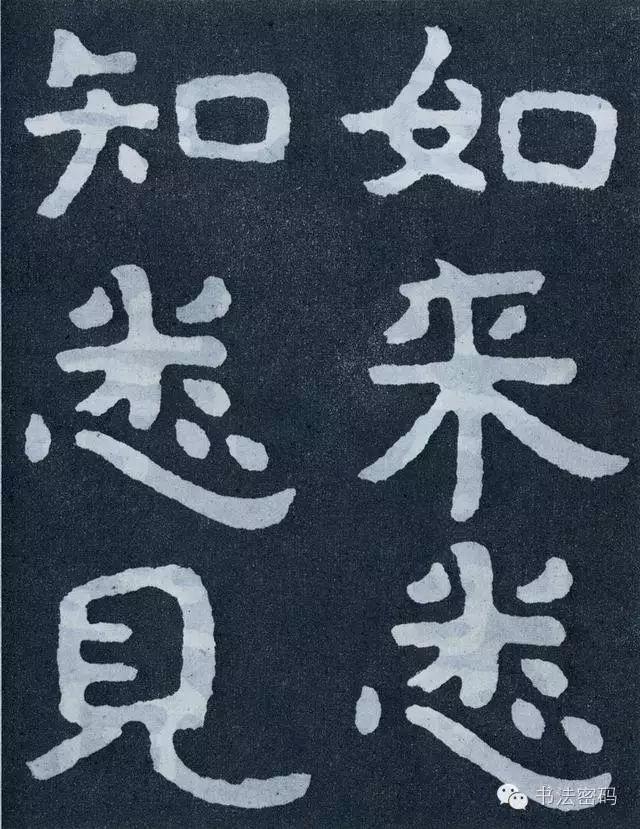 如来悉
知悉見
书法密码